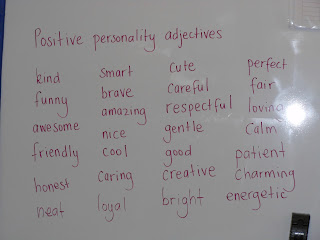 Positive personality adjectives
kind smart cute perfect
funny brave careful fair
awesome amazing respectful loving
friendly nice gentle calm
honest cool good patient
neat caring creative charming
loyal bright energetic